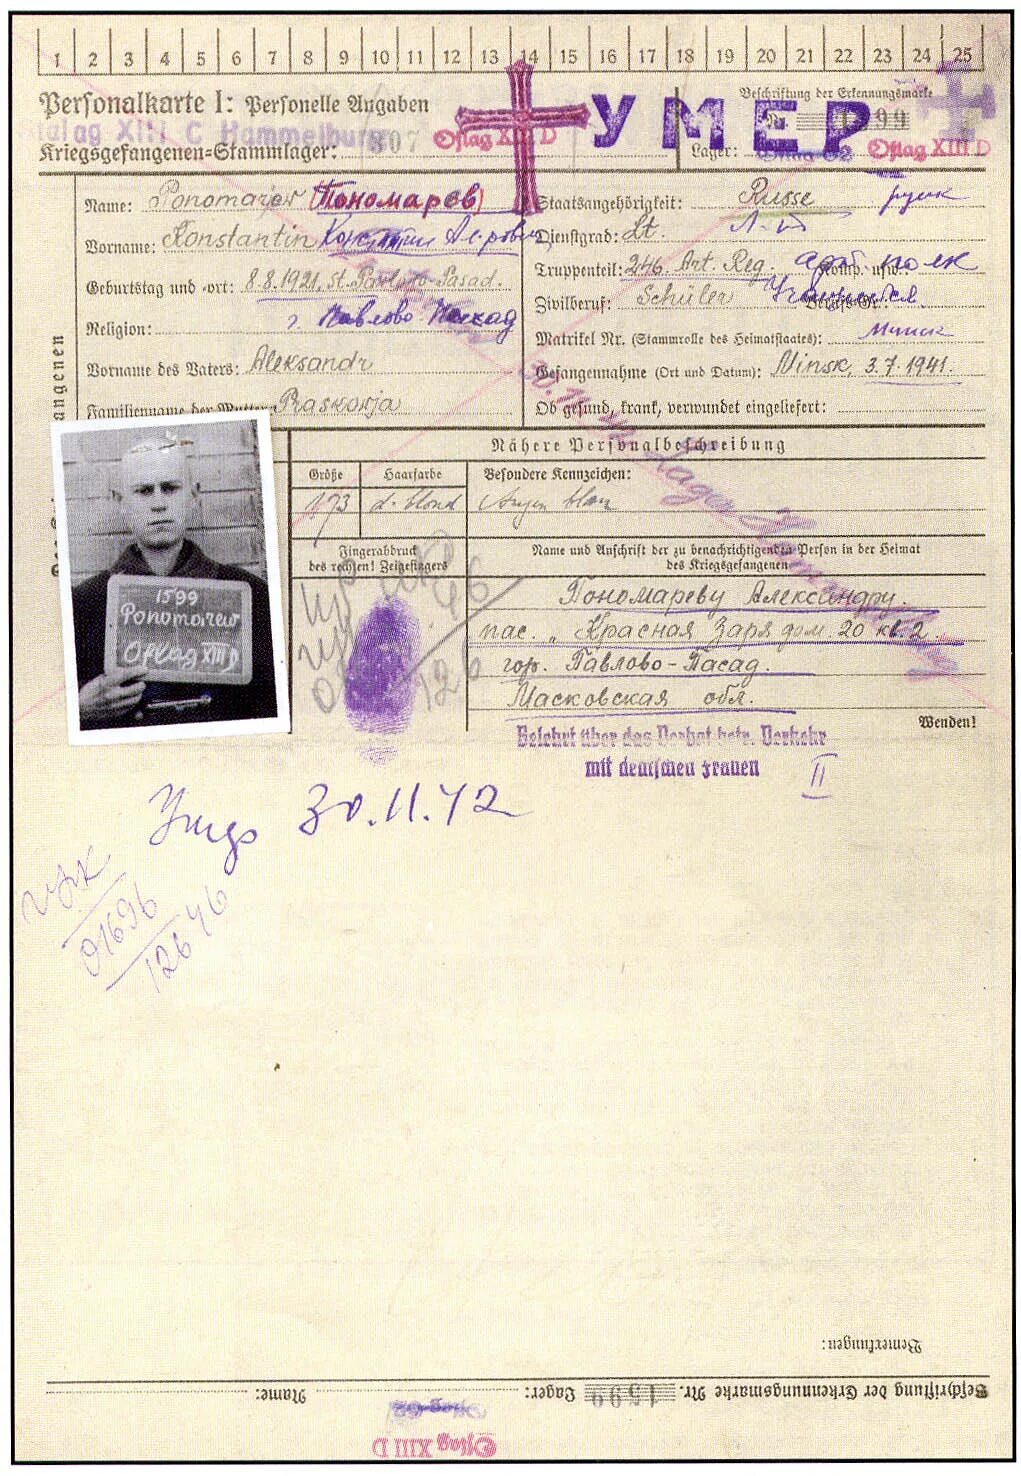 1 2 3 4 5 6 7 8 9 10 11 12 13 14 15 16 17 18 19 20 21 22 23 24 25
Personalkarte I: Personelle Angaben
Beschriftung der Erkennungsmarke
УМЕР
Nr. 1599
Stalag XIII C Hammelburg
Kriegsgefangenen-Stammlager: 807 Oflag XIII D
Lager: Oflag 62 Oflag XIII D
Name: Ponomarjew (Пономарев)
Staatsangehörigkeit: Russe русск
Vorname: Konstantin Константин
Dienstgrad: Lt. Л-т
Geburtstag und -ort: 8.8.1921, st. Pawlowo-Pasad.
г. Павлово Посад
Truppenteil: 246. Art. Reg. Komp. usw. арт полк
Zivilberuf: Schüler
Religion:
Matrikel Nr. (Stammrolle des Heimatstaates): Минск
Vorname des Vaters: Aleksandr
Gefangennahme (Ort und Datum): Minsk, 3.7.1941.
Familienname der Mutter: Raskorja
Ob gesund, krank, verwundet eingeliefert:
angenen
30.11.42 Lager Hammelburg
Nähere Personalbeschreibung
Größe Haarfarbe Besondere Kennzeichen:
173 d. blond Augen blau
Fingerabdruck
des rechten! Zeigefingers
Name und Anschrift der zu benachrichtigenden Person in der Heimat
des Kriegsgefangenen
1599
Ponomarew
Oflag XIII D
Пономареву Александру.
пос. „Красная Заря дом. 20 кв. 2.
гор. Павлово-Пасад.
Масковская обл.
Wenden!
Belehrt über das Verbot betr. Verkehr
mit deutschen Frauen
II
30.11.42
01696
12646
Bemerkungen:
Beschriftung der Erkennungsmarke Nr. 1599 Lager: Name:
Oflag 62
Oflag XIII D